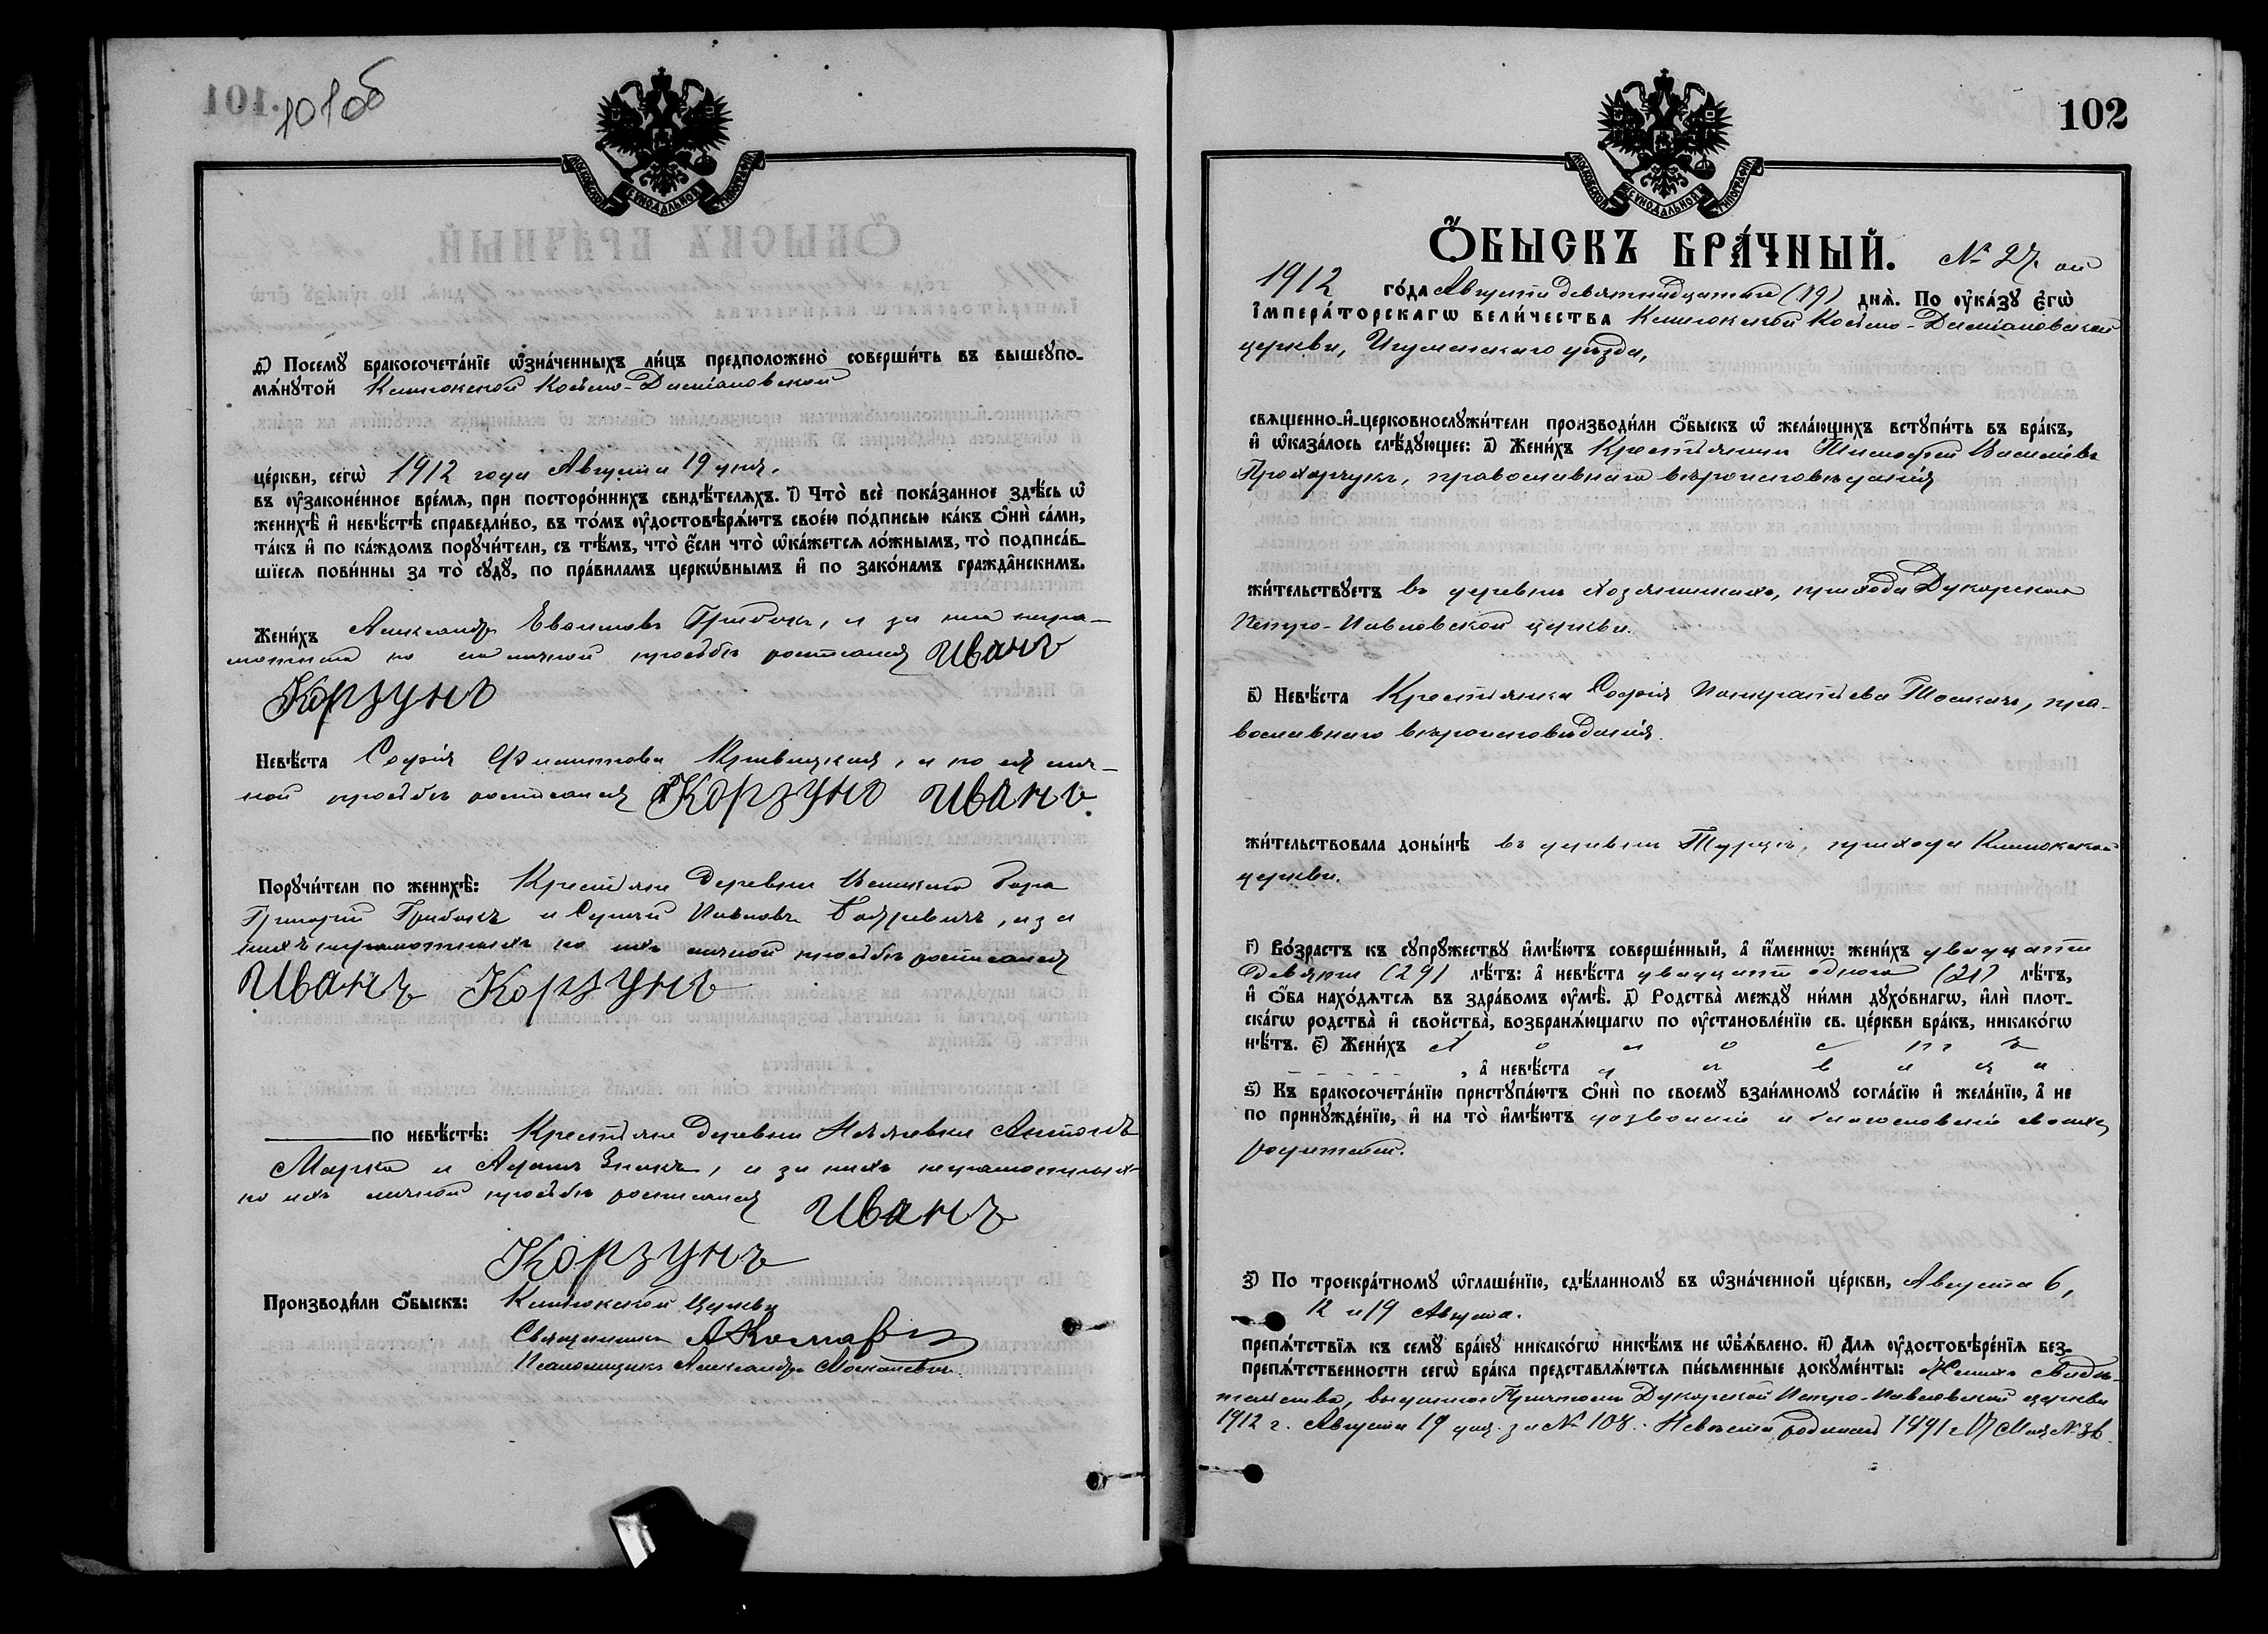 101об
МОСКОВСКОЙ СѴНОДАЛЬНОЙ ТИПОГРАФІИ
д҃) Посемꙋ бракосочета́нїе ѡ҆зна́ченныхъ ли́цъ предположено̀ соверши́ть въ вышеꙋпо-
мѧ́нꙋтой Клинокской Косьмо-Даміановской
це́ркви, сегѡ̀ 1912 года Августа 19 дня.
въ ᲂу҆законе́нное вре́мѧ, при посторо́ннихъ свидѣ́телѧхъ. і҃) Что̀ всѐ пока́занное здѣ́сь ѡ҆
женихѣ̀ и҆ невѣ́стѣ справедли́во, въ то́мъ ᲂу҆достовѣрѧ́ютъ свое́ю по́дписью ка́къ ѻ҆нѝ са́ми,
та́къ и҆ по ка́ждомъ порꙋчи́тели, съ тѣ́мъ, что̀ є҆́сли что̀ ѡ҆ка́жетсѧ ло́жнымъ, то̀ подписа́в-
шїесѧ пови́нны за то̀ сꙋдꙋ̀, по пра́виламъ церкѡ́внымъ и҆ по зако́намъ гражда̑нскимъ.
Жени́хъ Александръ Грибокъ, а за него негра-
мотнаго по его личной просьбѣ росписался Иванъ
Корзунъ
Невѣ́ста Софія Кривицкая, а по ея лич-
ной просьбѣ росписался Корзунъ Иванъ.
Порꙋчи́тели по женихѣ̀: Крестьяне деревни Великаго Бора
Григорій Грибокъ и Сергѣй Павловъ, а за
нихъ неграмотныхъ по ихъ личной просьбѣ росписался
Иванъ Корзунъ
по невѣ́стѣ: Крестьяне деревни Антонъ
Марко и Адамъ, а за нихъ неграмотныхъ
по ихъ личной просьбѣ росписался Иванъ
Корзунъ
Производи́ли ѻ҆́быскъ: Клинокской Церкви
Священникъ
Псаломщикъ Александръ
102
МОСКОВСКОЙ СѴНОДАЛЬНОЙ ТИПОГРАФІИ
Ѻ҆́БЫСКЪ БРА́ЧНЫЙ. № 27. ой
1912 го́да Августа девятнадцатаго (19) днѧ̀. По ᲂу҆ка́зꙋ є҆гѡ̀
і҆мпера́торскагѡ вели́чества Клинокской Косьмо-Даміановской
церкви, Игуменскаго уѣзда,
сващенно-и҆-церковнослꙋжи́тели производи́ли ѻ҆́быскъ ѡ҆ жела́ющихъ встꙋпи́ть въ бра́къ,
и҆ ѡ҆каза́лось слѣ́дꙋющее: а҃) Жени́хъ Крестьянинъ Тимофей Васильевъ
Прохорчукъ, православнаго вѣроисповѣданія
жи́тельствꙋетъ въ деревнѣ, прихода Дукорской
Петро-Павловской церкви.
в҃) Невѣ́ста Крестьянка Софія Панкратіева, пра-
вославнаго вѣроисповѣданія.
жи́тельствовала доны́нѣ въ деревнѣ Турцѣ, прихода Клинокской
церкви.
г҃) Во́зрастъ къ сꙋпрꙋ́жествꙋ и҆мѣ́ютъ соверше́нный, а҆ и҆́меннѡ: жени́хъ двадцати
девяти (29) лѣ́тъ: а҆ невѣ́ста двадцати одного (21) лѣ́тъ,
и҆ ѻ҆́ба нахо́дѧтсѧ въ здра́вомъ ᲂу҆мѣ̀. д҃) Родства̀ междꙋ̀ ни́ми дꙋхо́внагѡ, и҆лѝ плот-
ска́гѡ родства̀ и҆ свойства̀, возбранѧ́ющагѡ по ᲂу҆становле́нїю св. це́ркви бра́къ, никако́гѡ
нѣ́тъ. є҃) Жени́хъ х о л о с т ъ
, а҆ невѣ́ста д ѣ в и ц а
ѕ҃) Къ бракосочета́нїю пристꙋпа́ютъ ѻ҆нѝ по своемꙋ̀ взаи́мномꙋ согла́сїю и҆ жела́нїю, а҆ не
по принꙋжде́нїю, и҆ на то̀ и҆мѣ́ютъ дозволеніе и благословеніе своихъ
родителей.
з҃) По троекра́тномꙋ ѡ҆глаше́нїю, сдѣ́ланномꙋ въ ѡ҆зна́ченной це́ркви, Августа 6,
12 и 19 Августа.
препѧ́тствїѧ къ семꙋ̀ бра́кꙋ никако́гѡ никѣ́мъ не ѡ҆б̾ѧ́влено. и҃) Длѧ ᲂу҆достовѣре́нїѧ без-
препѧ́тственности сегѡ̀ бра́ка представлѧ́ютсѧ пи́сьменные докꙋме́нты: Жениха свидѣ-
тельство, выданное Причтомъ Дукорской Петро-Павловской церкви
1912 г. Августа 19 дня за № 108. Невѣста родилась 1891 г. 17 Мая №